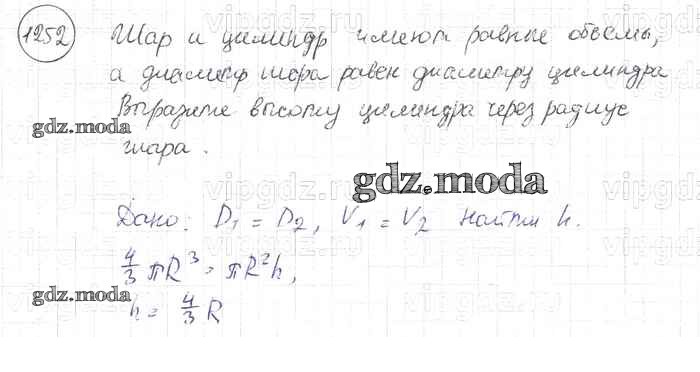 1252 Шар и цилиндр имеют равные объемы,
а диаметр шара равен диаметру цилиндра
Выразите высоту цилиндра через радиус
шара.
gdz.moda
gdz.moda
Дано: D₁ = D₂, V₁ = V₂ Найти h.
4/3 πR³ = πR²h,
gdz.moda
h = 4/3 R